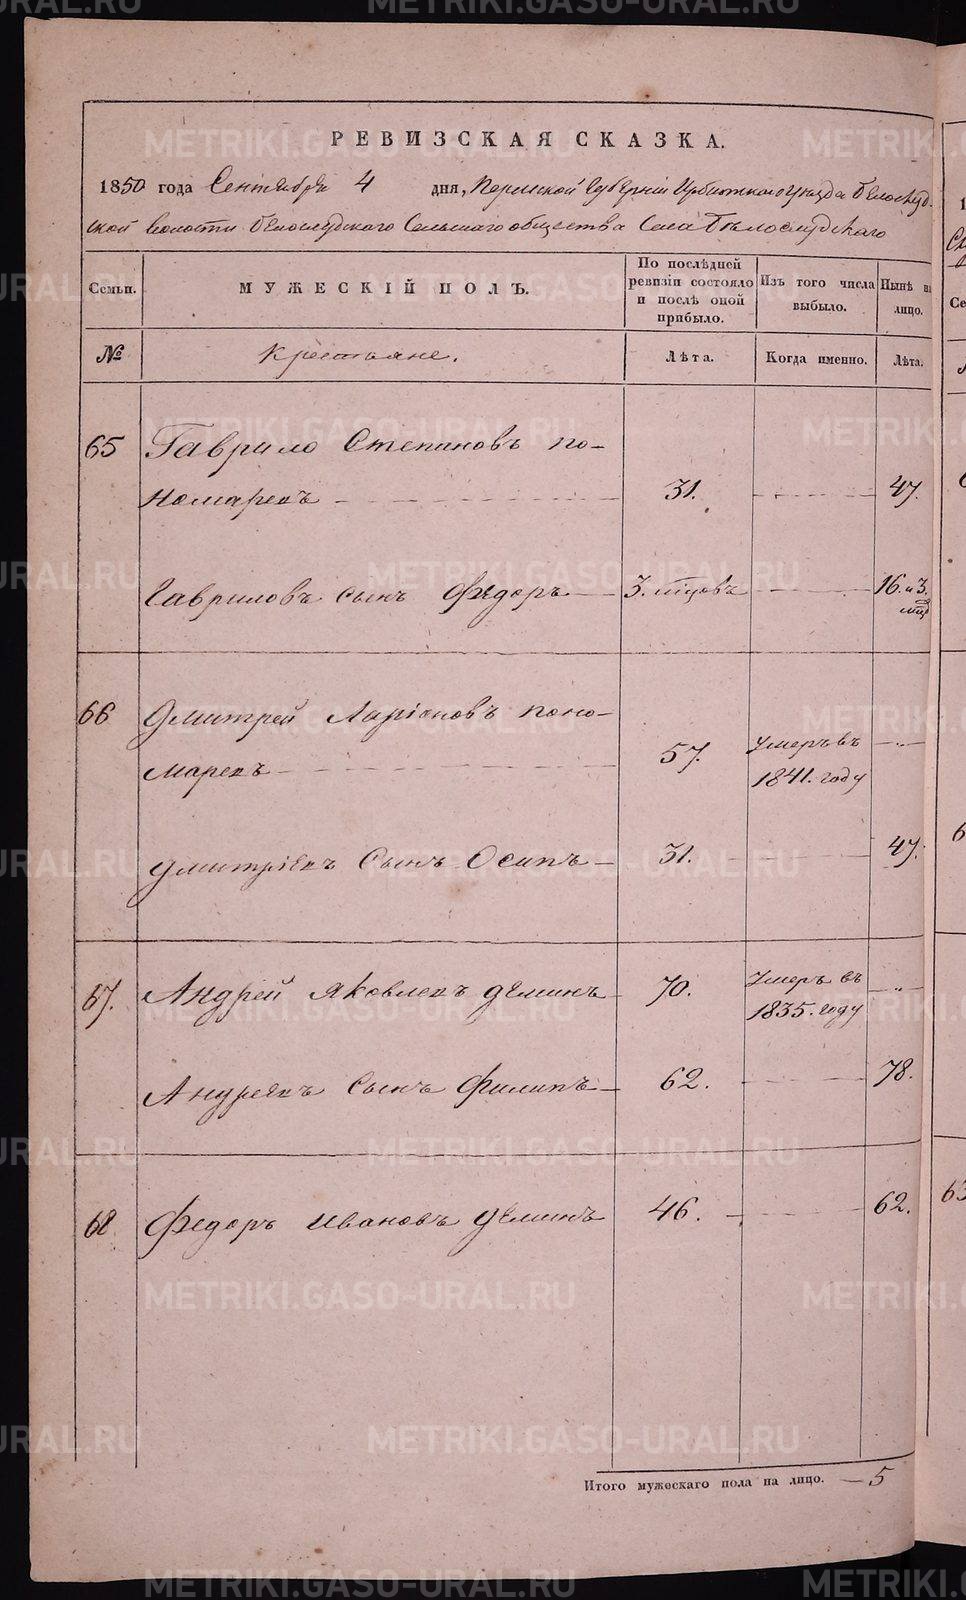 РЕВИЗСКАЯ СКАЗКА.
1850 года Сентября 4 дня, Пермской Губерніи Ирбитского Уезда Белослуд-
ской волости Белослудского Сельскаго общества Села Бѣлослудскаго
Семьи.
МУЖЕСКІЙ ПОЛЪ.
По послѣдней ревизіи состояло и послѣ оной прибыло.
Изъ того числа выбыло.
Нынѣ на лицо.
№ Крестьяне. Лѣта. Когда именно. Лѣта.
65 Гаврило Степановъ по-
номаревъ 31. 47.
Гавриловъ сынъ Ѳедоръ 3. мцовъ 16. и 3. мцѣ
66 Дмитрей Ларіоновъ поно-
маревъ 57. Умеръ въ 1841. году „
Дмитріевъ Сынъ Осипъ 31. 47.
67. Андрей Яковлевъ Деминъ 70. Умеръ въ 1835. году „
Андреевъ Сынъ Филипъ 62. 78.
68 Федоръ Ивановъ Деминъ 46. 62.
Итого мужескаго пола на лицо. 5
METRIKI.GASO-URAL.RU